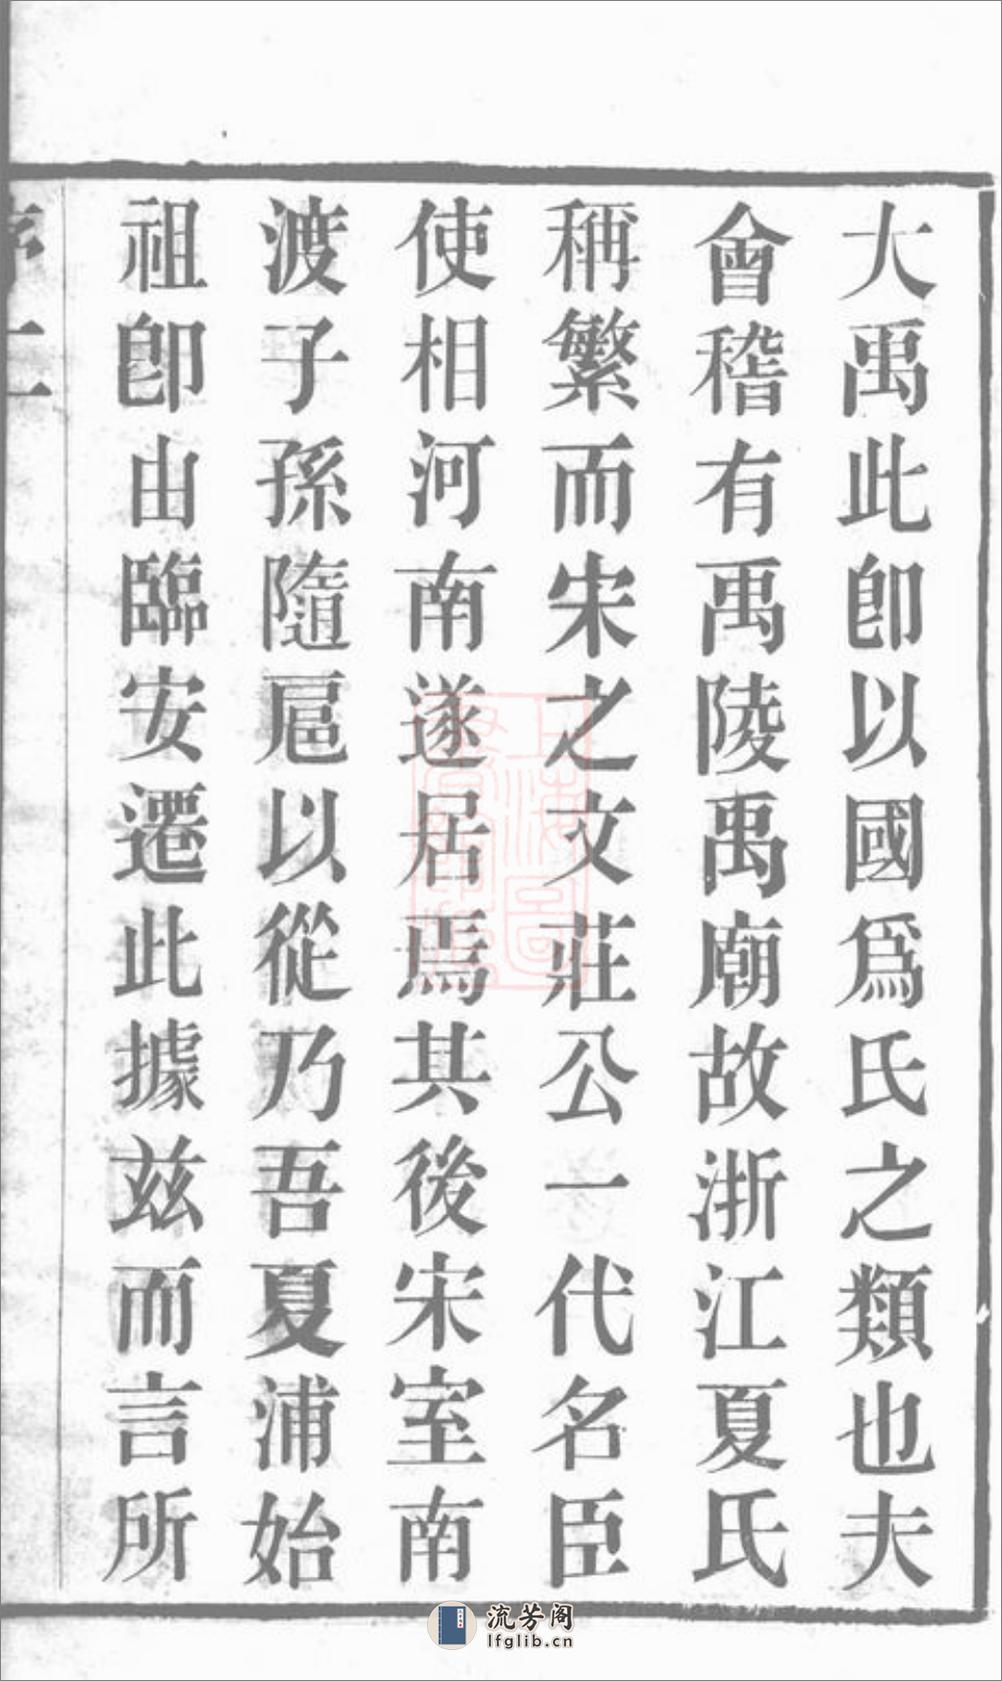 大禹此卽以國爲氏之類也夫
會稽有禹陵禹廟故浙江夏氏
稱繁而宋之文莊公一代名臣
使相河南遂居焉其後宋室南
渡子孫隨扈以從乃吾夏浦始
祖卽由臨安遷此據兹而言所
序
二
上海圖
流芳阁
lfglib.cn